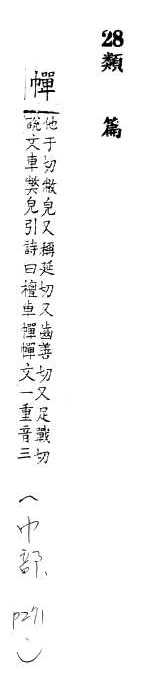 28類篇
幝
他于切敝皃又稱延切又齒善切又足戰切
說文車獘皃引詩曰檀車幝幝文一重音三
(巾部. p271)